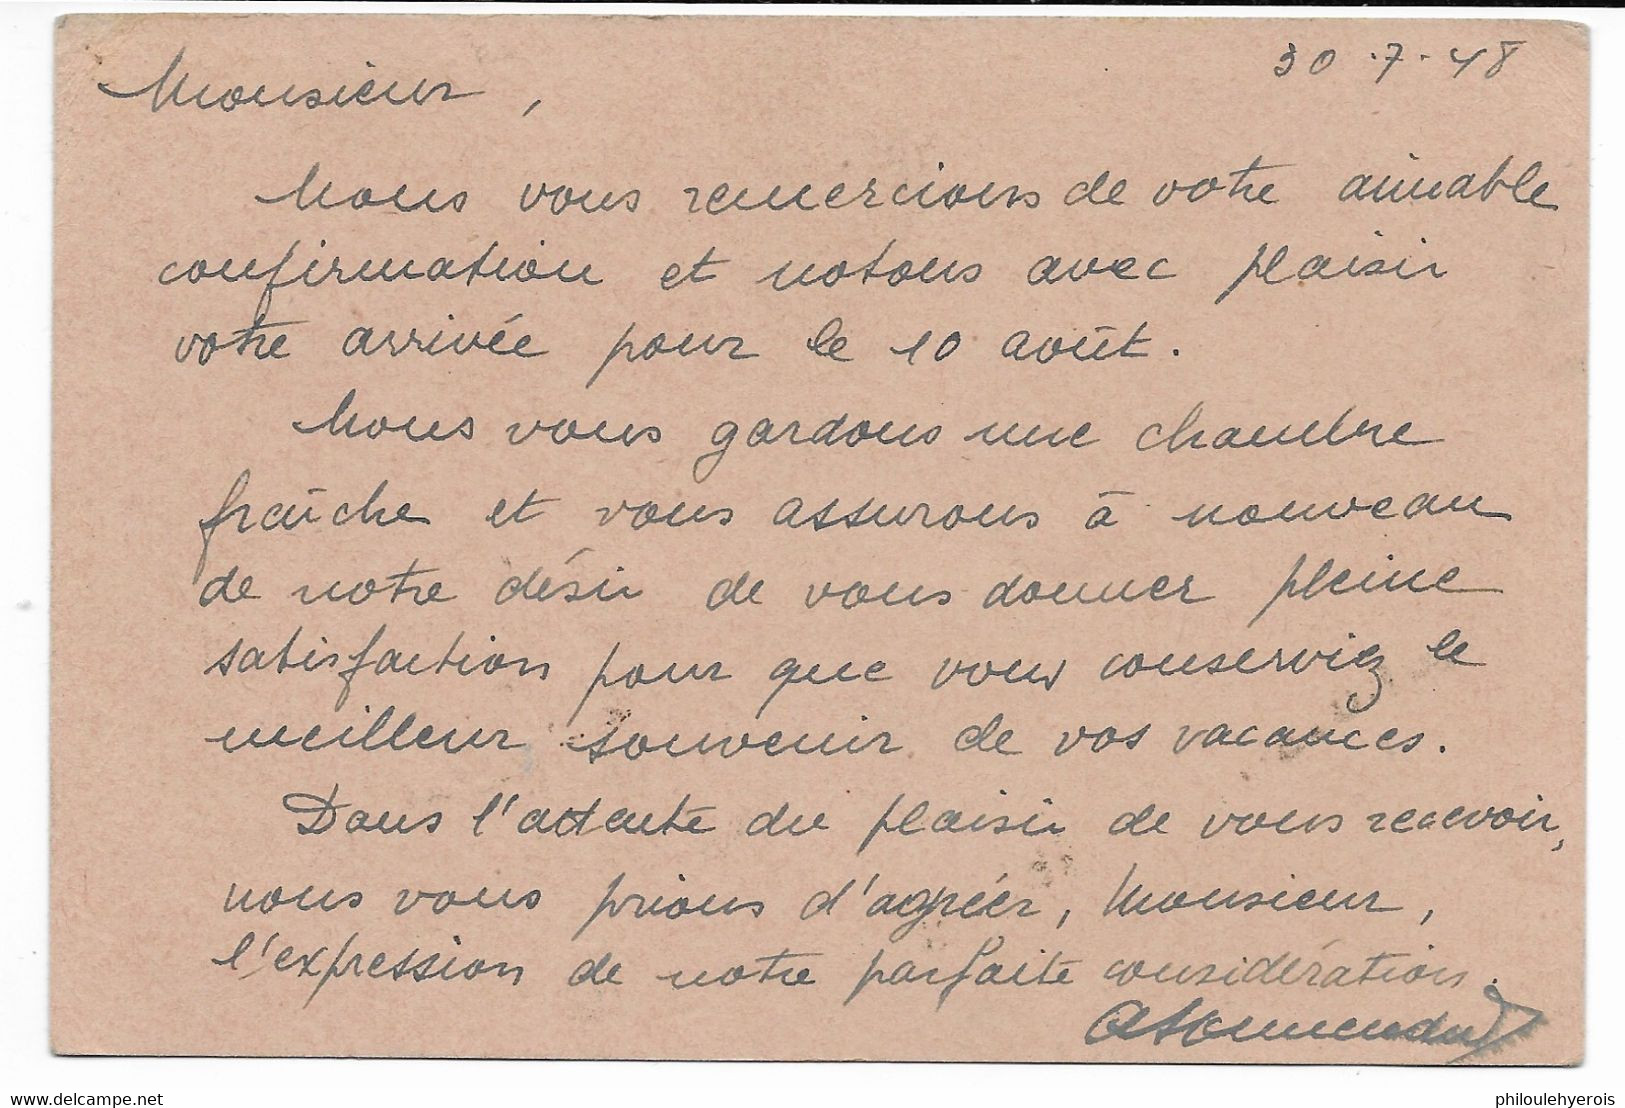 30.7.48
Monsieur,
Nous vous remercions de votre aimable
confirmation et notons avec plaisir
votre arrivée pour le 10 août.
Nous vous gardons une chambre
fraîche et vous assurons à nouveau
de notre désir de vous donner pleine
satisfaction pour que vous conserviez le
meilleur souvenir de vos vacances.
Dans l'attente du plaisir de vous recevoir,
nous vous prions d'agréer, Monsieur,
l'expression de notre parfaite considération.
delcampe.net
philoulehyerois